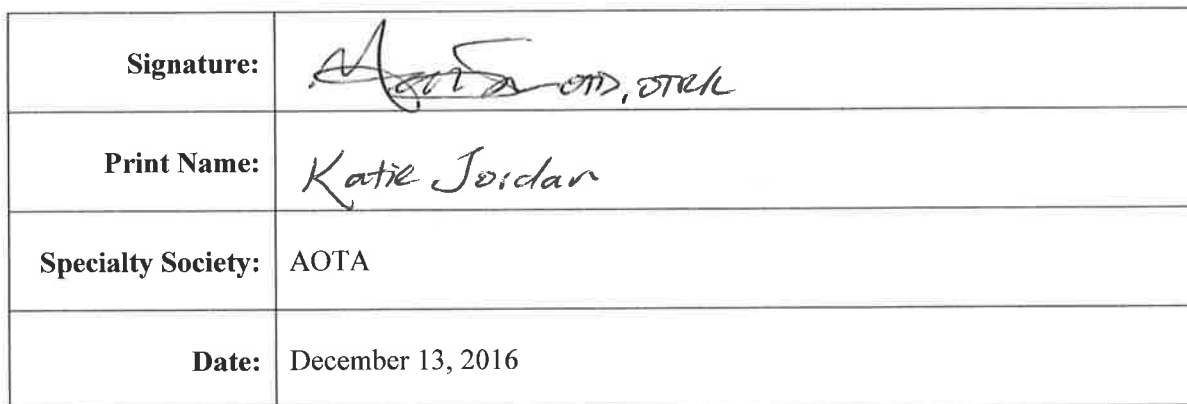 Signature: OTD, OTR/L
Print Name: Katie Jordan
Specialty Society: AOTA
Date: December 13, 2016